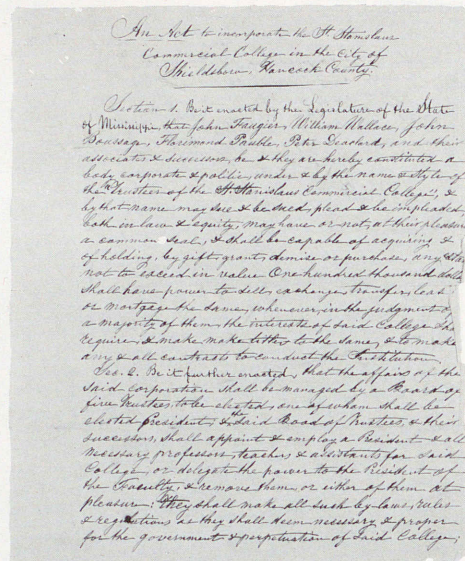 An Act to incorporate the St Stanislaus
Commercial College in the City of
Shieldsboro, Hancock County.
Section 1. Be it enacted by the Legislature of the State
of Mississippi, that John William Wallace, John
Florimond Peter and their
associates & successors, be & they are hereby constituted a
body corporate & politic, under & by the name & style of
the "Trustees of the St Stanislaus Commercial College", &
by that name may sue & be sued, plead & be impleaded,
both in law & equity, may have or not, at their pleasure
a common seal, & shall be capable of acquiring &
of holding, by gift, grant, demise or purchase, any
not to exceed in value One hundred thousand
shall have power to sell, exchange, transfer,
or mortgage the same, whenever, in the judgment of
a majority of them, the interests of said College
require, & make make titles to the same, & to make
any & all contracts to conduct the Institution.
Sec. 2. Be it further enacted, that the affairs of the
said corporation shall be managed by a Board of
five Trustees to be elected, one of whom shall be
elected president, & said Board of Trustees, & their
successors, shall appoint & employ a President & all
necessary professors, teachers & assistants for said
College or delegate the power to the President of
the Faculty, & remove them, or either of them at
pleasure; they shall make all such by-laws, rules
& regulations as they shall deem necessary & proper
for the government & perpetuation of said College;